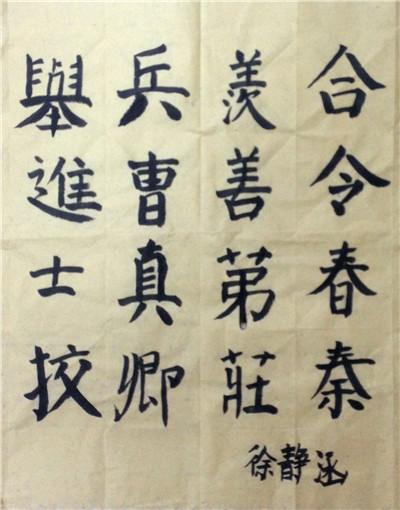 合令春秦
羡善苐莊
兵曹真卿
舉進士挍
徐静涵